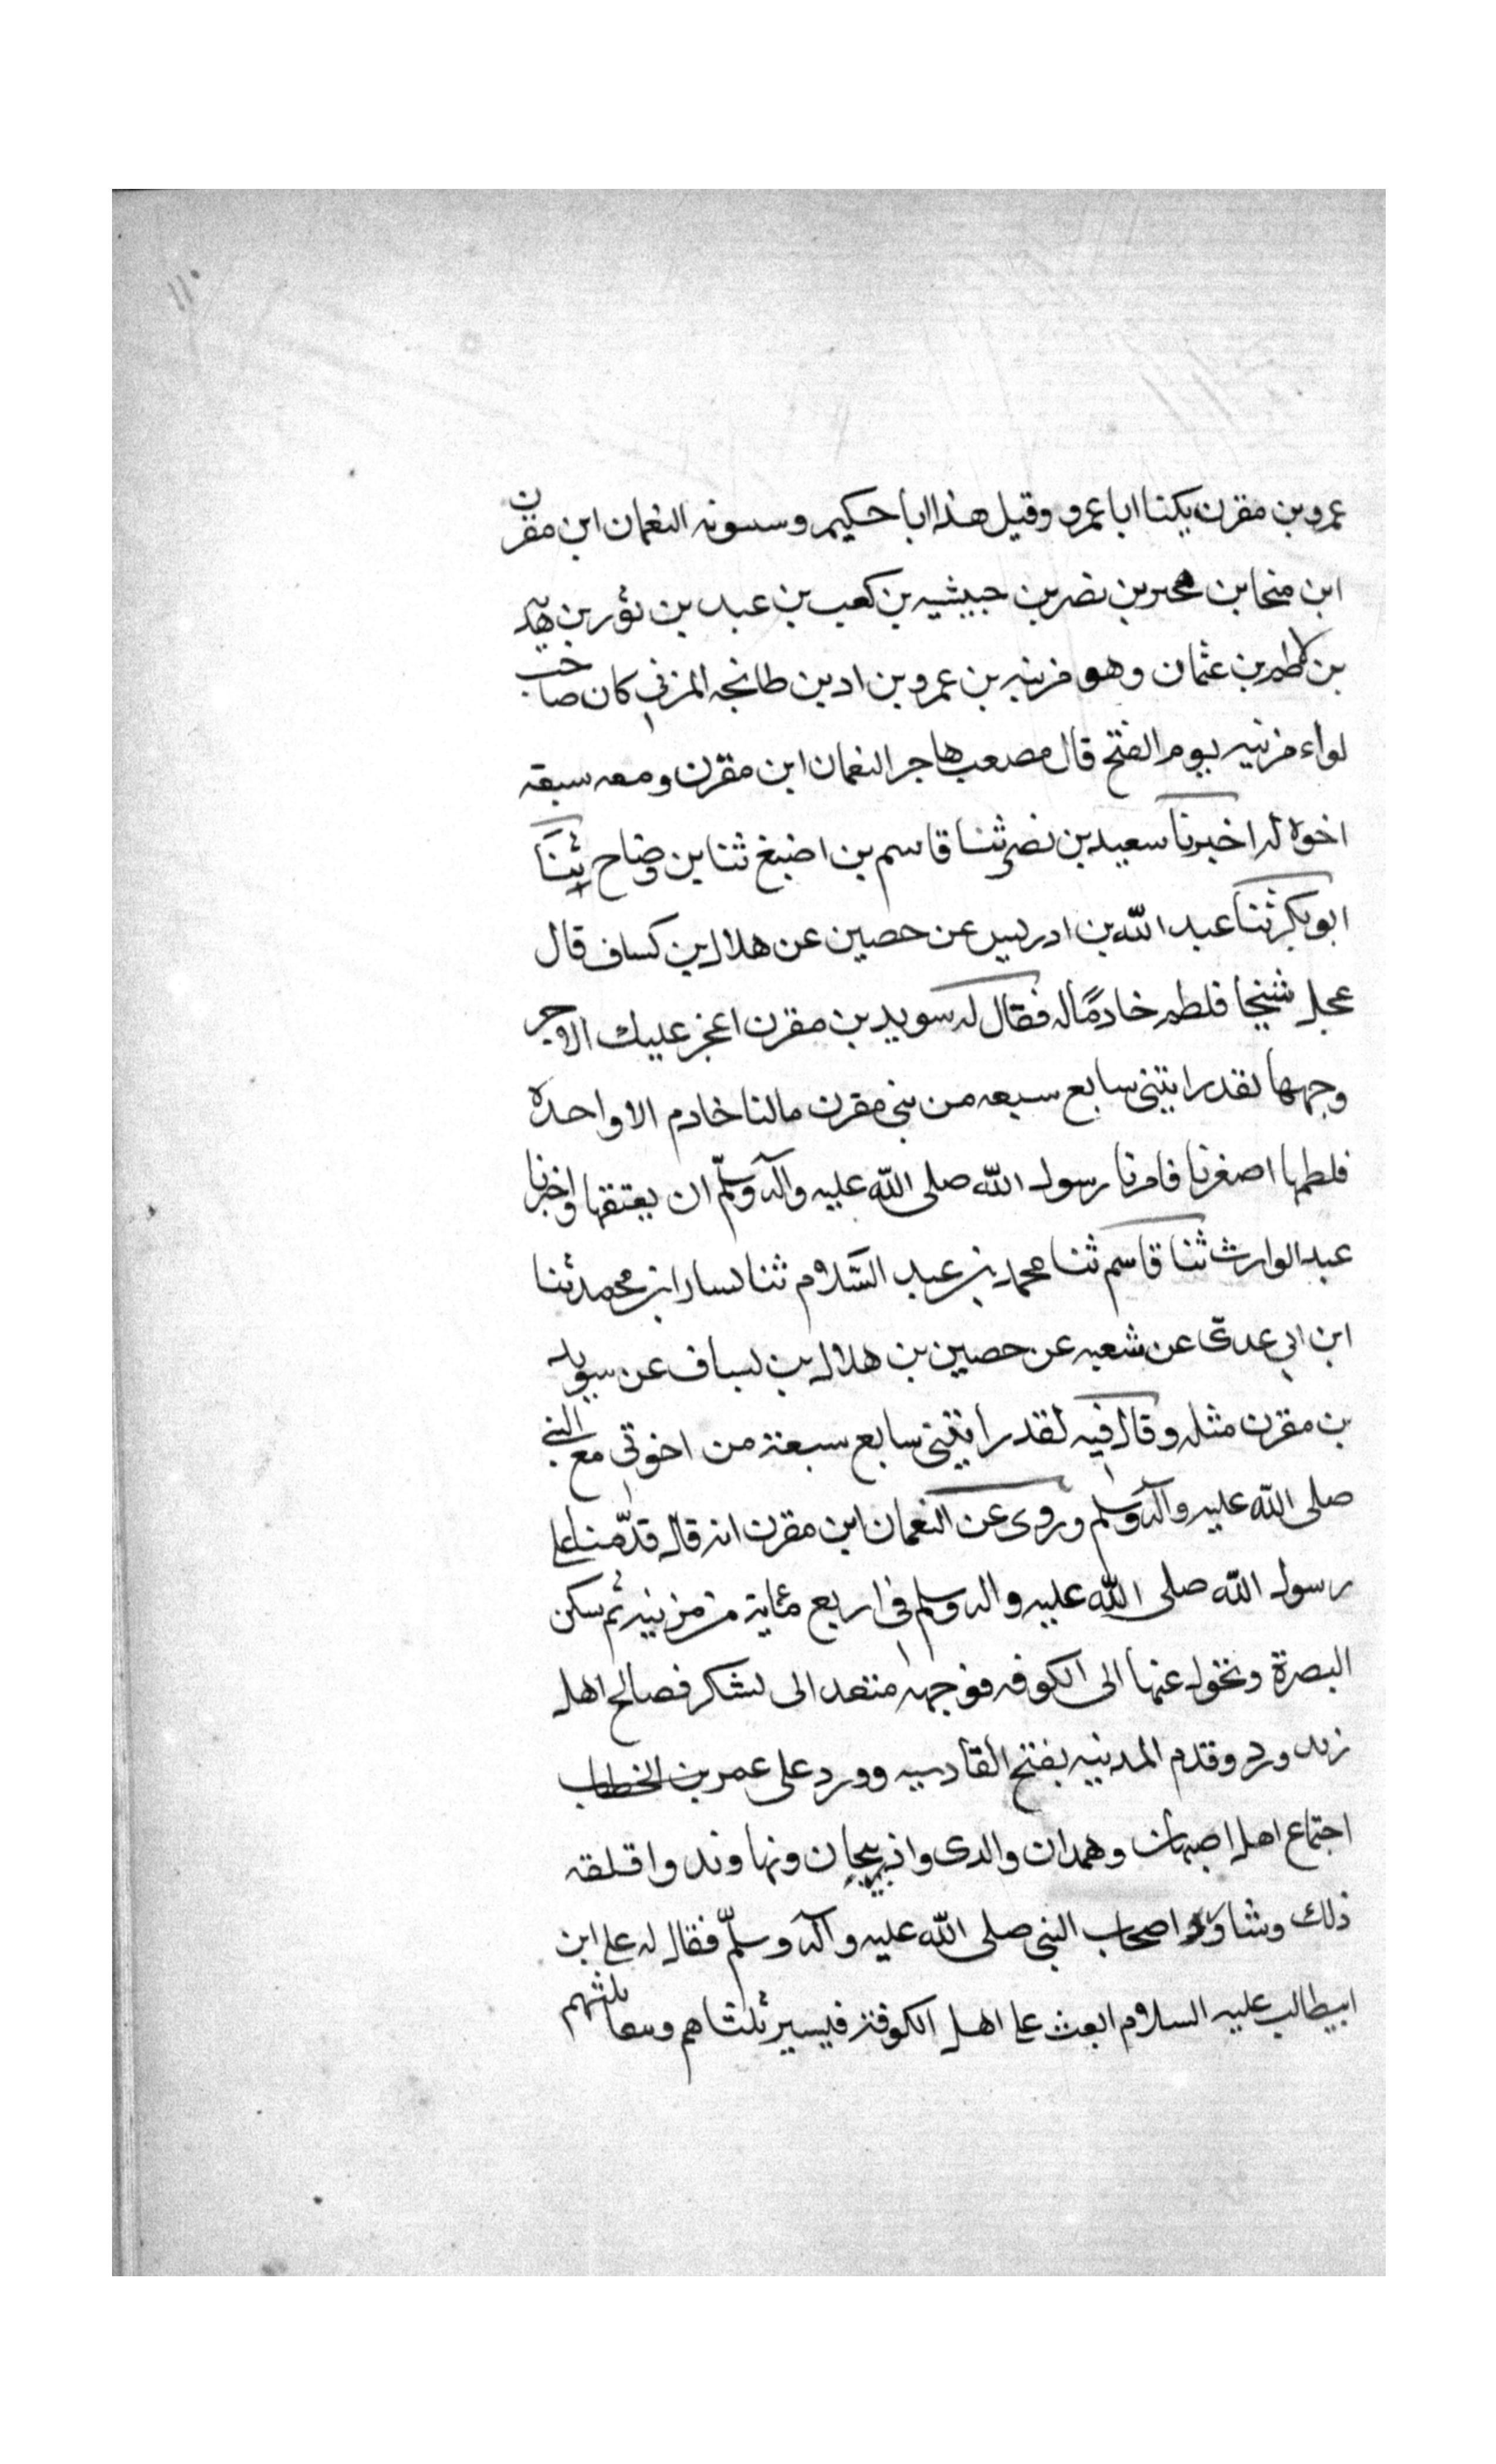 عمرو بن مقرن يكنا ابا عمرو وقيل هذا ابا حكيم وسسونه النعمان ابن مقرن
ابن منحا بن محىر بن نصر بن حبيشيه بن كعب بن عبد بن ثور بن هدبه
بن طهر بن عثمان وهو مزينه بن عمرو بن اد بن طانجه المزني كان صاحب
لواء مزنيه يوم الفتح قال مصعب هاجر النعمان ابن مقرن ومعه سبقه
اخوة له اخبرنا سعيد بن نصر ثنا قاسم بن اضبغ ثنا بن وضاح ثنا
ابو بكر ثنا عبد الله بن ادريس عن حصين عن هلال بن كساف قال
عجل شيخا فلطم خادمًا له فقال له سويد بن مقرن اعجز عليك الا حر
وجهها لقد رايتنى سابع سبعه من بني مقرن مالنا خادم الا واحدة
فلطمها اصغرنا فامرنا رسول الله صلى الله عليه وآله وسلّم ان يعتقها واخبرنا
عبد الوارث ثنا قاسم ثنا محمد بن عبد السَّلام ثنا لسار ابن محمد ثنا
ابن ابي عدى عن شعبه عن حصين بن هلال بن لساف عن سويد
بن مقرن مثله وقال فيه لقد رأيتني سابع سبعة من اخوتي مع النبي
صلى الله عليه وآله وسلم وروى عن النعمان ابن مقرن انه قال قدّمنا على
رسول الله صلى الله عليه واله وسلم في اربع مئاية من مزنيه ثم سكن
البصرة وتحول عنها الى الكوفه فوجهه متعد الى لشكر فصالح اهل
زند ورد وقدم المدينه بفتح القادسيه وورد على عمر بن الخطاب
اجتماع اهل اصبهان وهمدان والدى واذربيجان ونهاوند واقلقه
ذلك وشاور اصحاب النبي صلى الله عليه وآله وسلّم فقال له على ابن
ابيطالب عليه السلام ابعث على اهل الكوفة فيسير ثلثاهم وىىقا ثلثهم